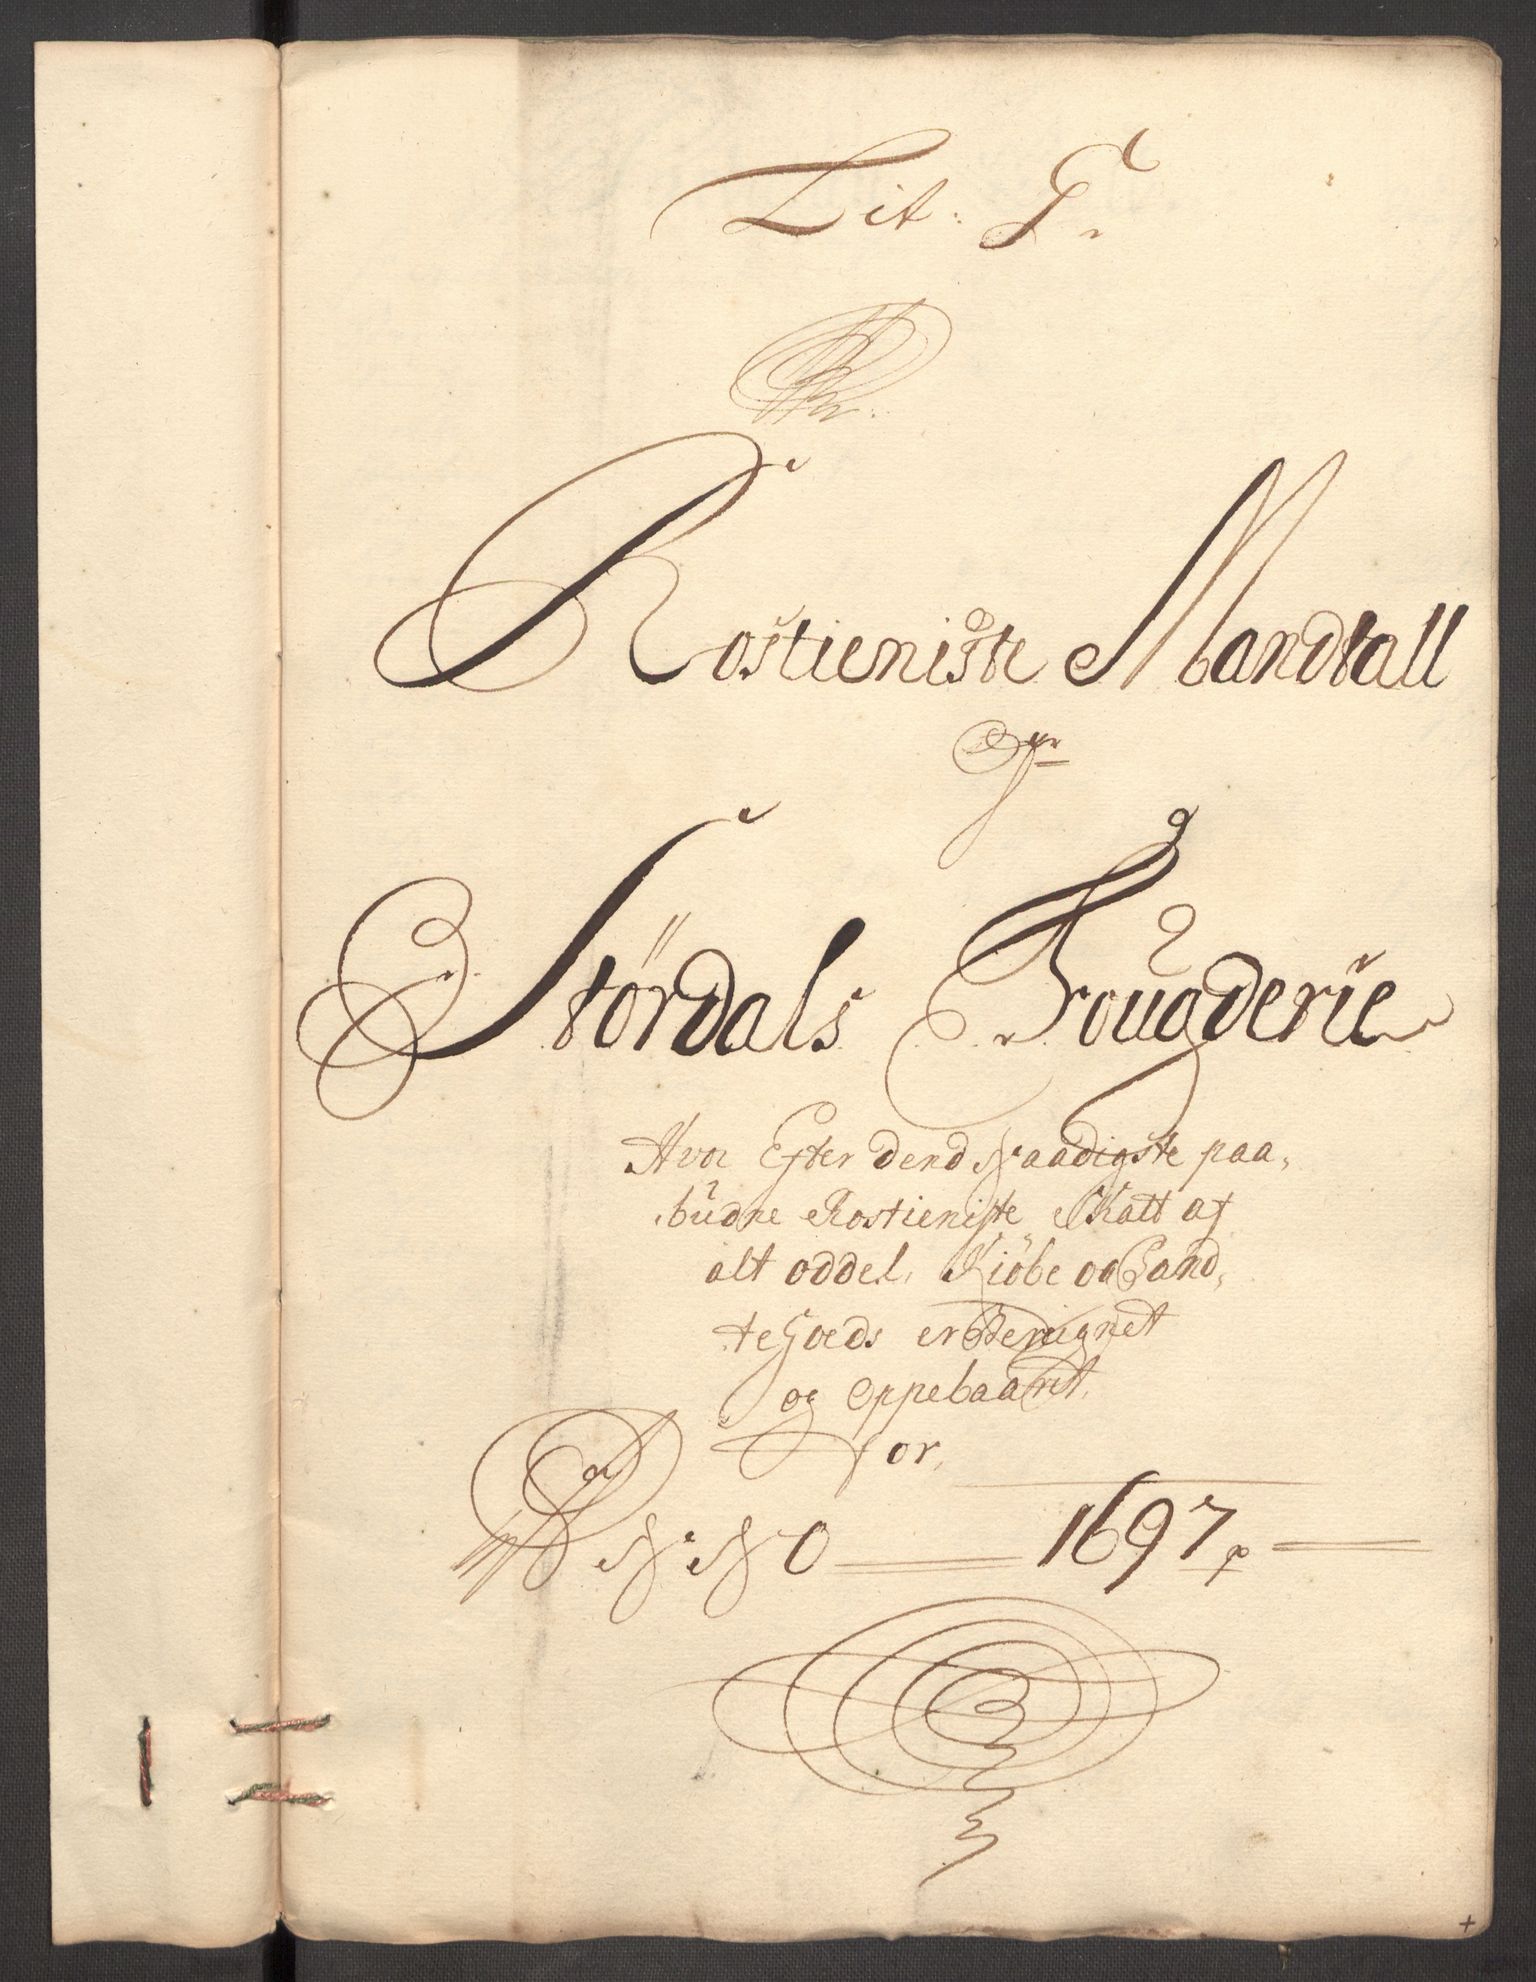 Lit: G.
Rostieniste Mandtall
Stördals Fougderie
Hvor Efter dend Naadigste paa,
budne Rostieniste Skatt af
alt oddel, Kiöbe og Pand,
te Goeds er Bereignet
og Oppebaaret,
for,
ANNO 1697